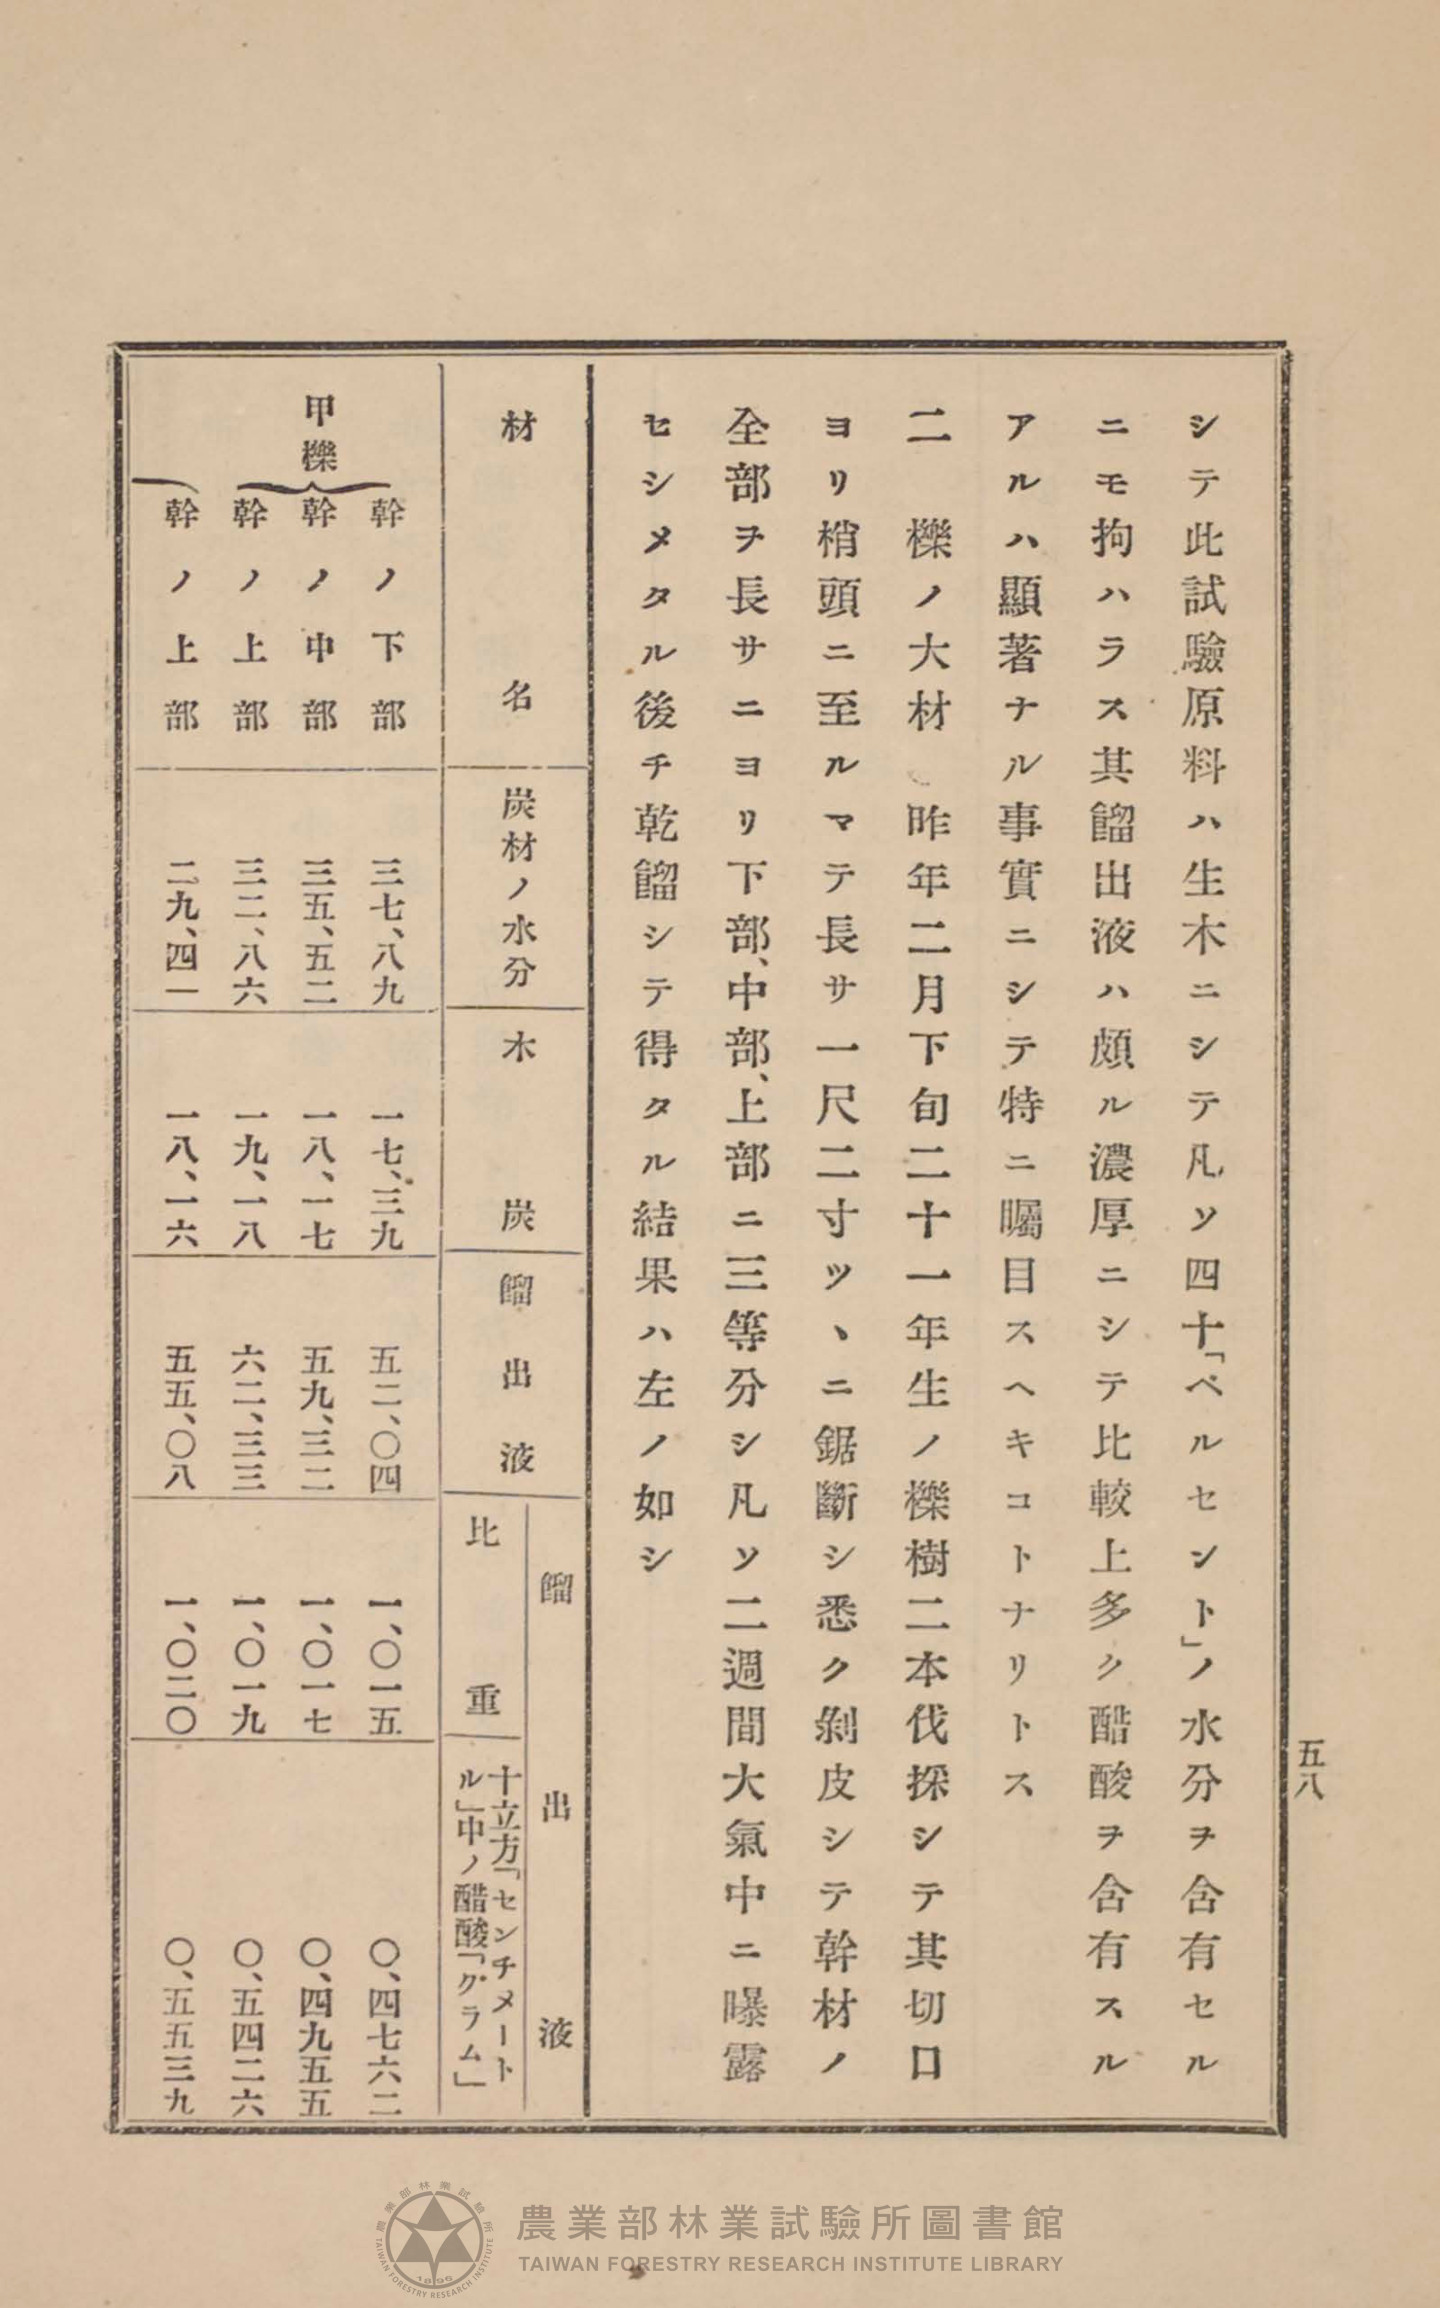 五八
シテ此試驗原料ハ生木ニシテ凡ソ四十「ペルセント」ノ水分ヲ含有セル
ニモ拘ハラス其餾出液ハ頗ル濃厚ニシテ比較上多ク醋酸ヲ含有スル
アルハ顯著ナル事實ニシテ特ニ矚目スヘキコトナリトス
二　櫟ノ大材　昨年二月下旬二十一年生ノ櫟樹二本伐採シテ其切口
ヨリ梢頭ニ至ルマテ長サ一尺二寸ツヽニ鋸斷シ悉ク剝皮シテ幹材ノ
全部ヲ長サニヨリ下部、中部、上部ニ三等分シ凡ソ二週間大氣中ニ曝露
セシメタル後チ乾餾シテ得タル結果ハ左ノ如シ
材名
炭材ノ水分
木炭
餾出液
餾出液
比重
十立方「センチメートル」中ノ醋酸「グラム」
甲櫟
幹ノ下部　三七、八九　一七、三九　五二、〇四　一、〇一五　〇、四七六二
幹ノ中部　三五、五二　一八、一七　五九、三二　一、〇一七　〇、四九五五
幹ノ上部　三二、八六　一九、一八　六二、三三　一、〇一九　〇、五四二六
幹ノ上部　二九、四一　一八、一六　五五、〇八　一、〇二〇　〇、五五三九
農業部林業試驗所圖書館
TAIWAN FORESTRY RESEARCH INSTITUTE LIBRARY
農業部林業試驗所
TAIWAN FORESTRY RESEARCH INSTITUTE
1896